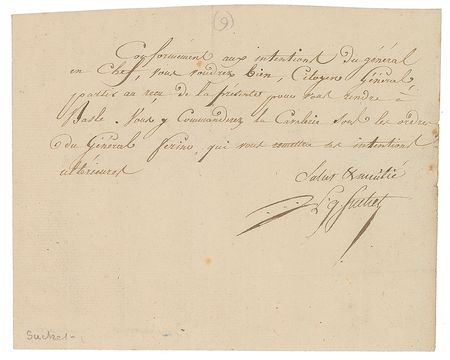 9
Conformement aux intentions du général
en Chef, vous voudrez bien, Citoyen Général
partir au recu de la presente pour vous rendre à
Basle. Vous y Commanderez la Cavalerie sous les ordres
du Général Ferino qui vous remettra ses intentions
ultérieures
Salut & amitié
Suchet
Suchet